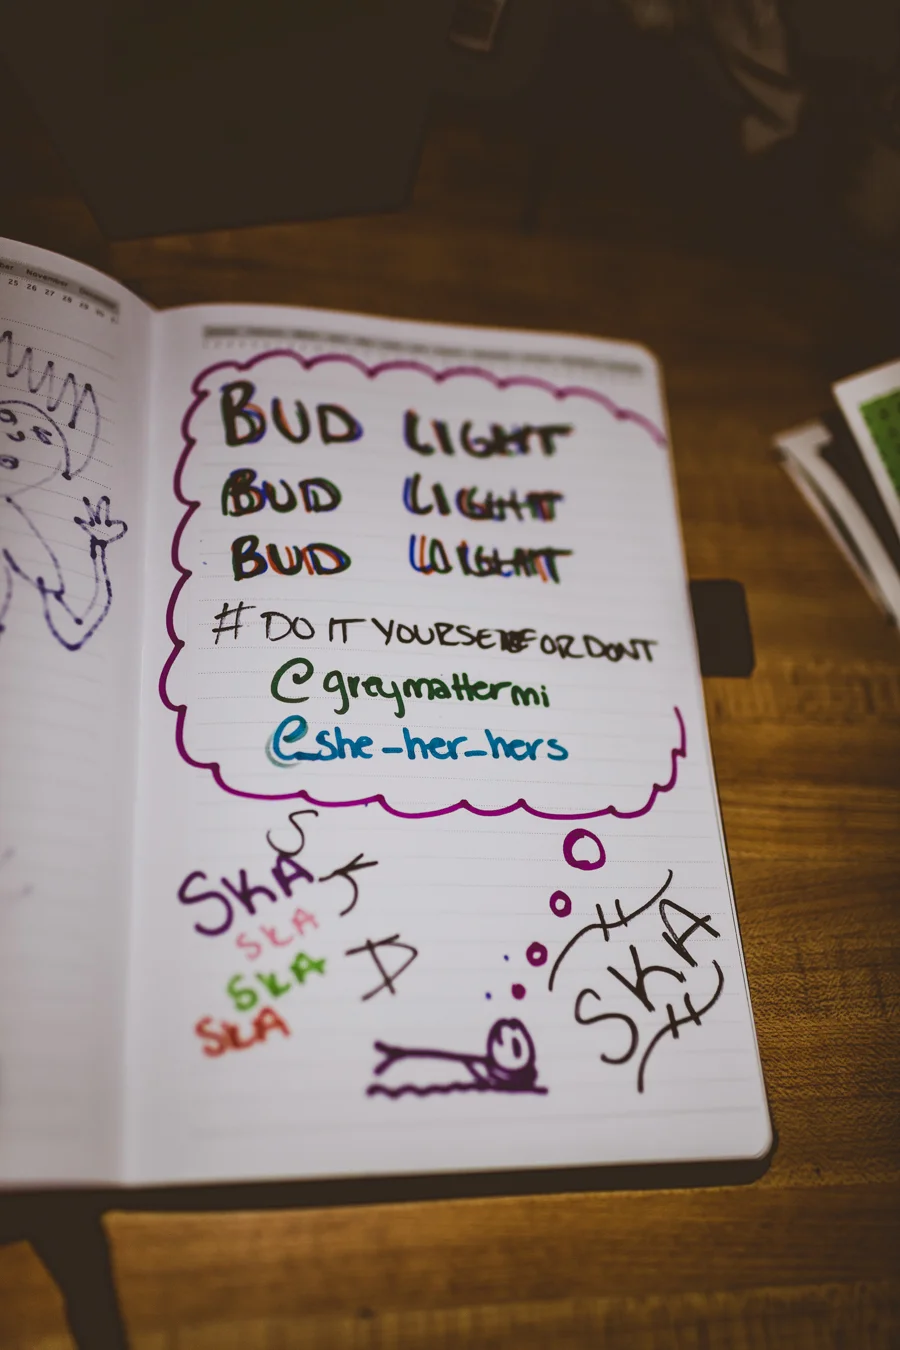 November
25 26 27 28 29 30
BUD LIGHT
BUD LIGHT
BUD LIGHT
# DO IT YOURSELF OR DONT
@greymattermi
@she_her_hers
S
SKA
K
SKA
A
SKA
SKA
SKA